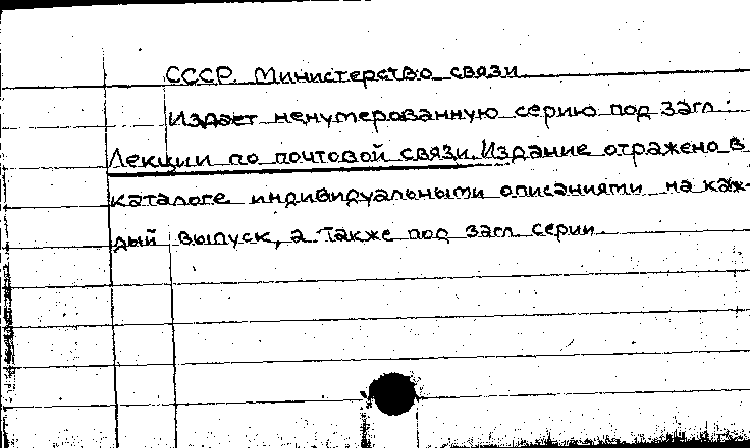 СССР. Министерство связи
Издает ненумерованную серию под загл.:
Лекции по почтовой связи. Издание отражено в
каталоге индивидуальными описаниями на каж-
дый выпуск, а также под загл. серии.